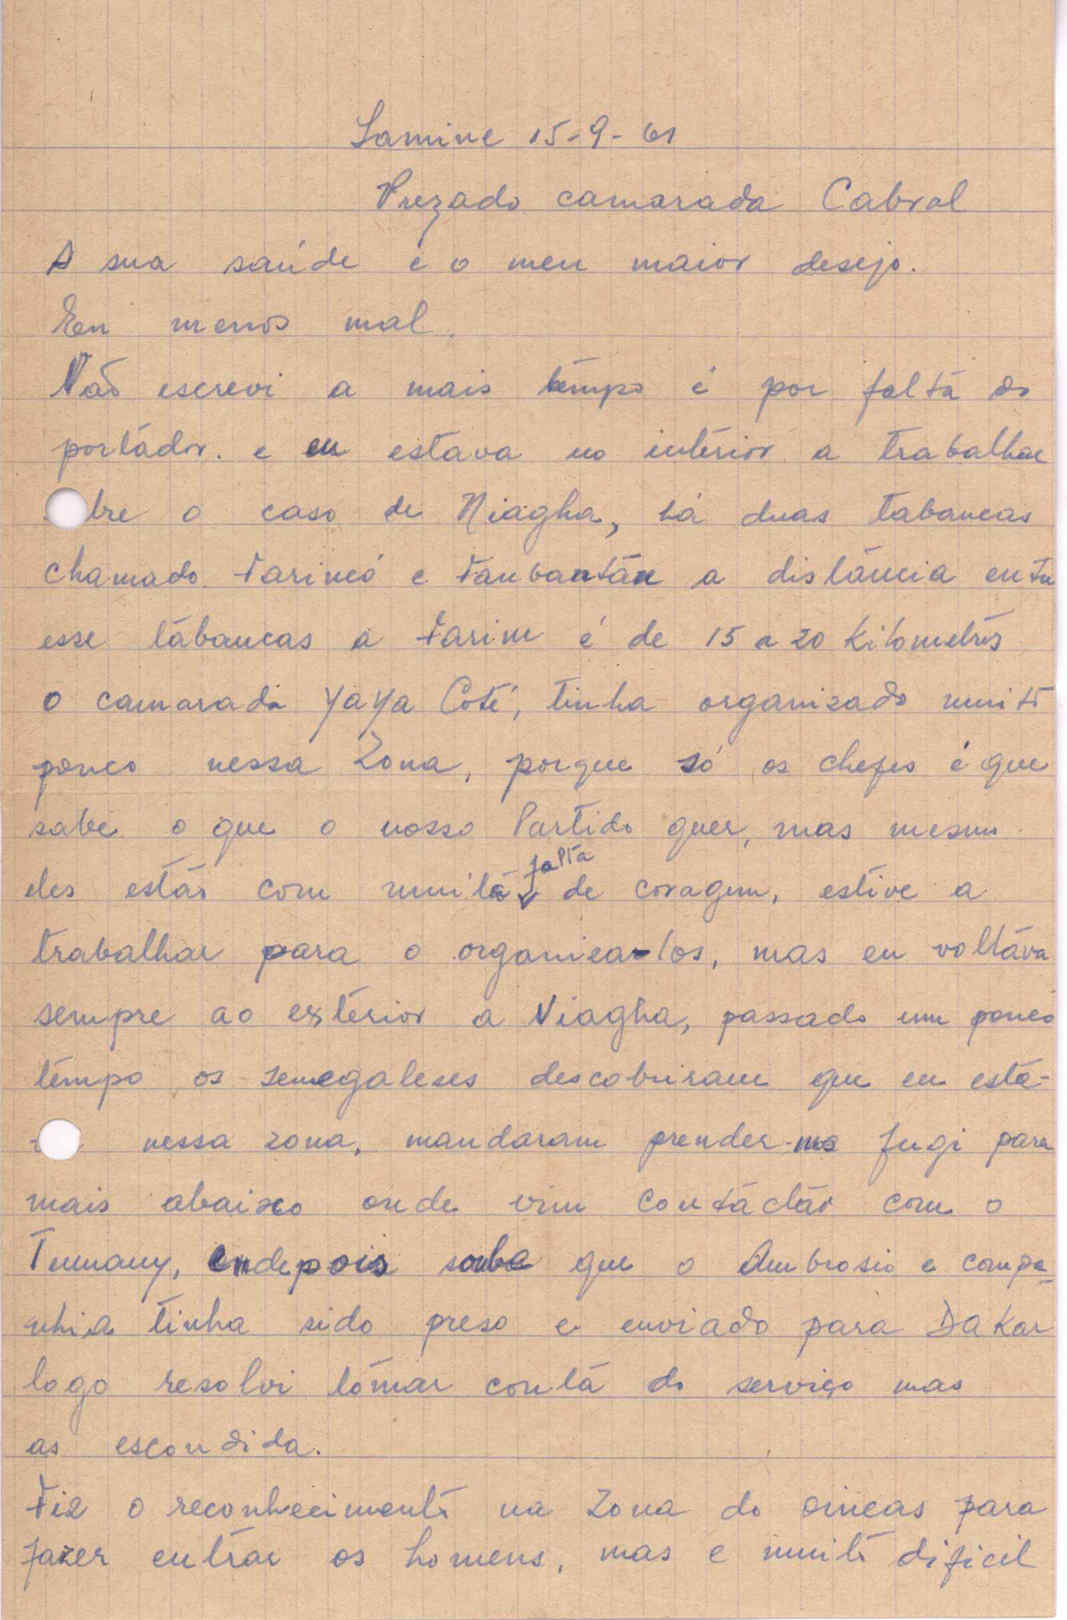 Lamine 15-9-61
Prezado camarada Cabral
A sua saúde é o meu maior desejo.
Eeu menos mal.
Não escrevi a mais tempo é por falta do
portádor. e eu estava no intérior a trabalhar
bre o caso de Niagha, há duas tabancas
chamado Farincó e Fanbantán a distância entre
esse tábancas a Farim é de 15 a 20 kilometrós
O camarada YaYa Coté, tinha organizado muitó
pouco nessa Zona, porque só os chefes é que
sabe o que o nosso Partido quer, mas mesmo
eles estár com muitá falta de coragem, estive a
trabalhar para o organizar-los, mas eu voltáva
sempre ao extérior a Niagha, passado um pouco
témpo os senegaleses descobriram que eu está-
nessa zona, mandaram prender-me fugi para
mais abaixo onde vim contáctár com o
Tumany, endepois soube que o Ambrosio e compa-
nhia tinha sido preso e enviado para Dakar
logo resolvi tómar contá do serviço mas
as escondida.
Fiz o reconhecimentó na Zona do Oincas para
fazer entrar os homens, mas e muitó dificil